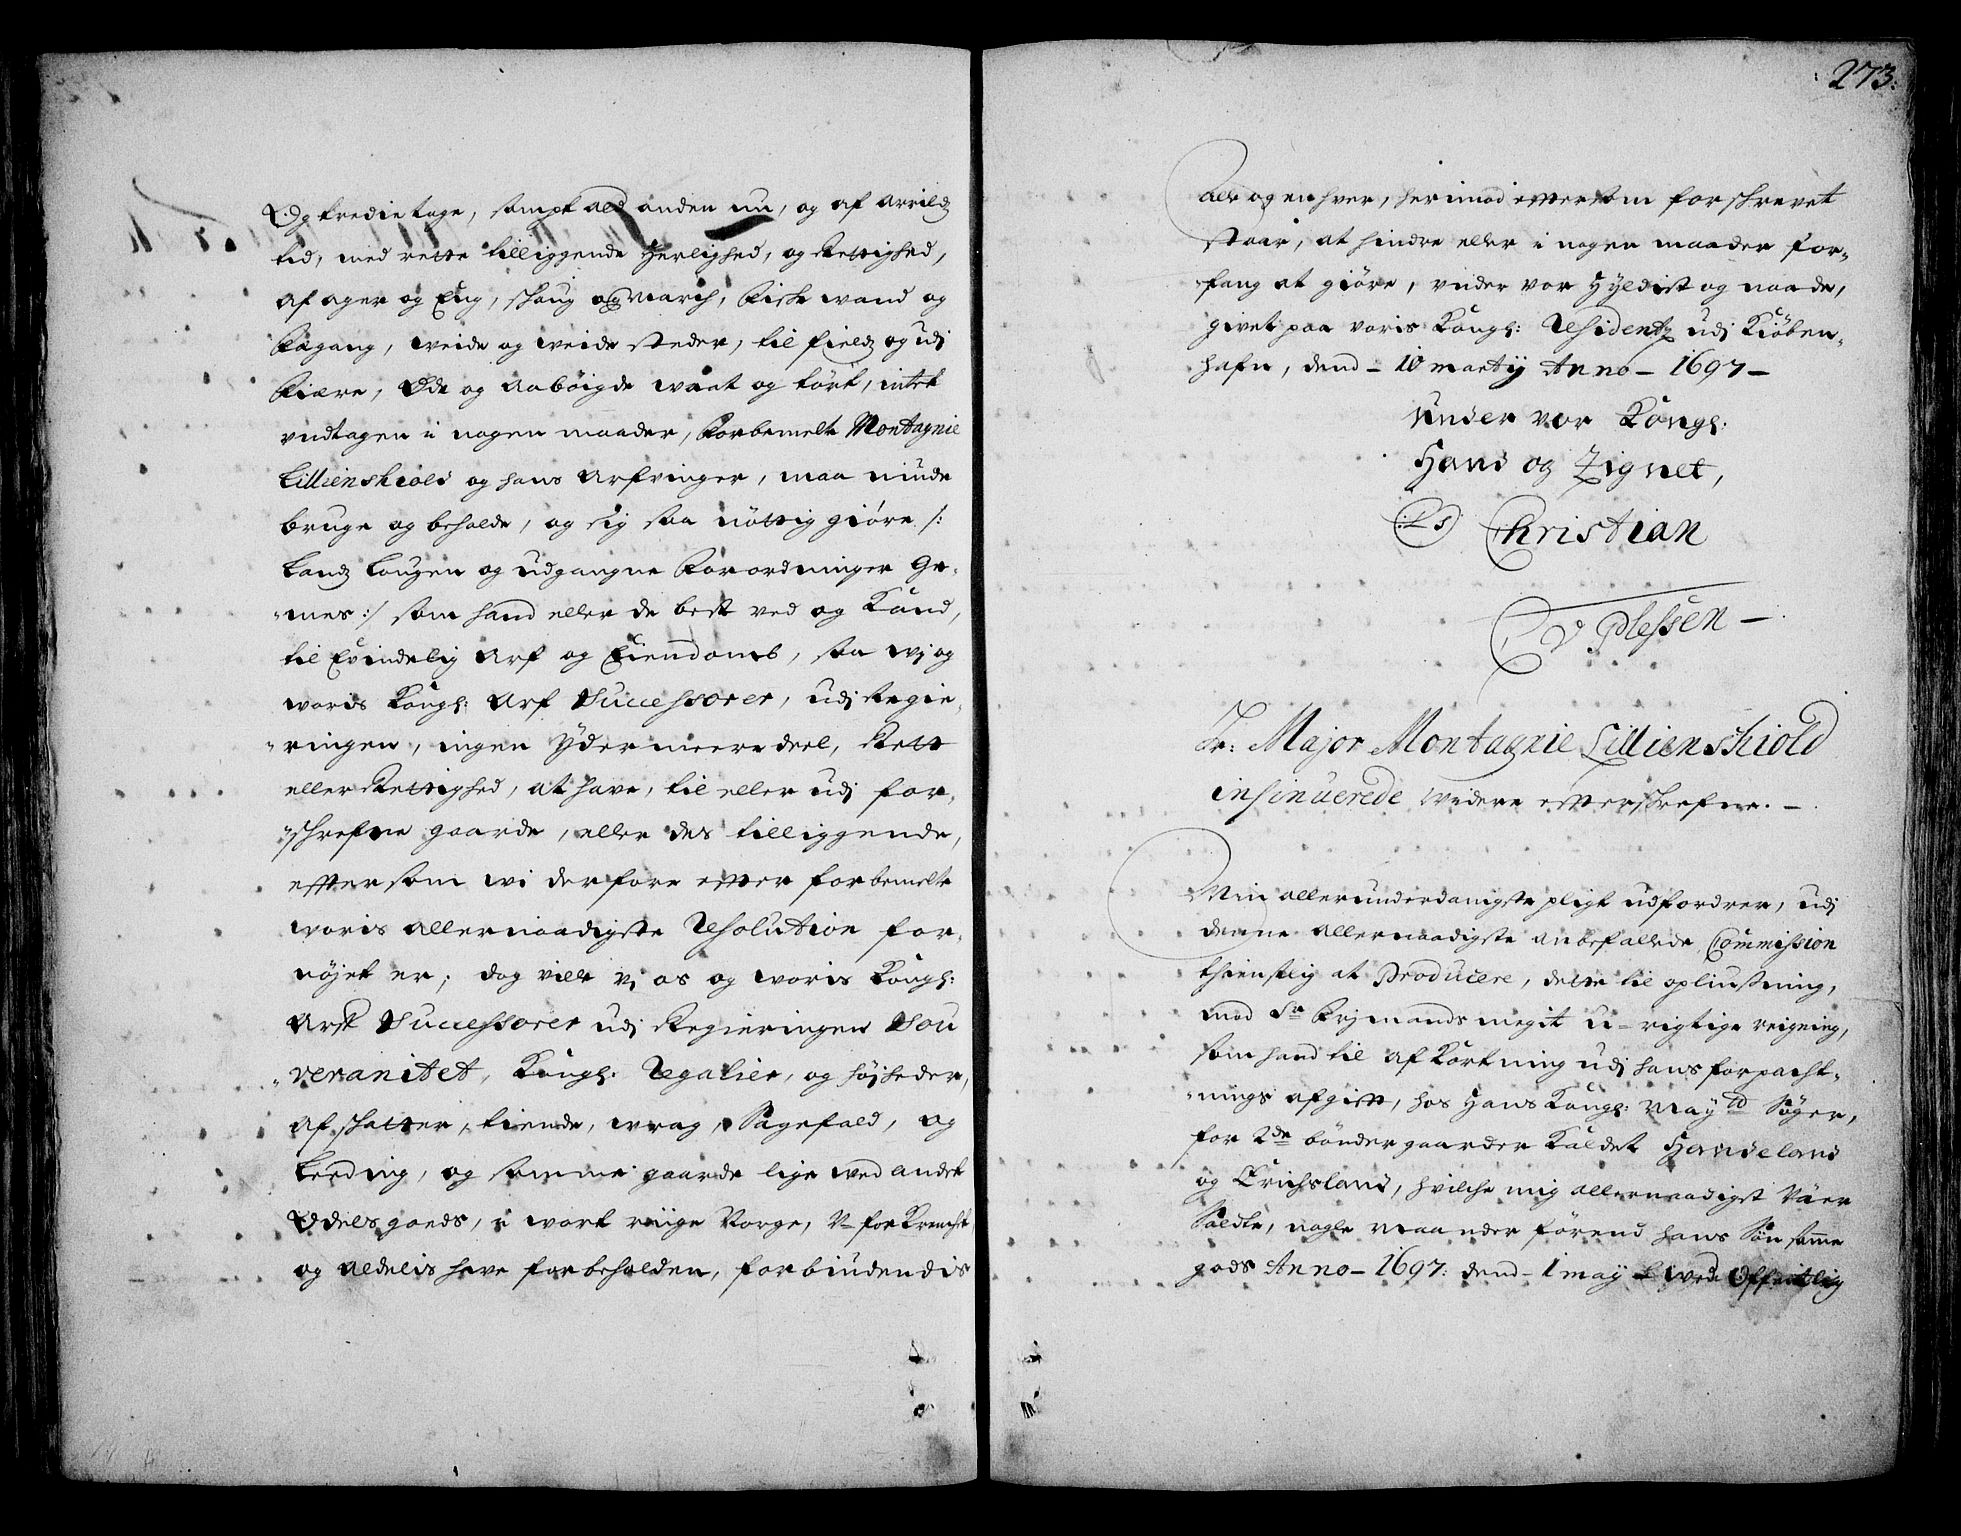 Og tredie tage, sampt ald anden nu, og af Arrildz
tid, med rette tilliggende Herlighed, og Rettighed,
af ager og Eng, schoug og march, fiske wand og
fægang, weide og weide steder, til field og udj
fiære, Øde og aabøigde waat og tørt, intet
vndtagen i nogen maader, forbemelte Montagnie
Lillienskiold og hans Arfvinger, maa niude
bruge og beholde, og sig saa nøttig giøre /:
Landz Lougen og udgangne Forordninger Ge-
-mes :/ som hand eller de best ved og Kand,
til Evindelig Arf og Eiendomb, saa wj og
woris Kongl: Arf Successorer, udj Regie-
-ringen, ingen Ydermeere deel, Rett
eller Rettighed, at have, til eller udj for-
-schrefne gaarde, eller des tilliggende,
effter som wi derfore effter forbemelte
woris allernaadigste Resolution for-
nøjet er; dog ville vj os og woris Kongl:
Arf Successorer udj Regieringen Sou
-veranitet, Kongl: Regalier, og højheder,
af schatter, tiende, wrag, Sagefald, og
Leeding, og samme gaarde lige wed andet
Odels goeds, i wort riige Norge, V-forkrencht
og aldelis have forbeholden, forbiudendis
273:
alle og enhver, herimod effter som forschrevet
staar, at hindre eller i nogen maader for-
-fang at giøre, vnder vor Hyldist og naade,
givet paa voris Kongl: Residentz udj Kiøben-
hafn, dend - 10 martij Anno - 1697 -
Under vor Kongl:
Hand og Zignet,
(:LS) Christian
C V Plessen -
Hr: Major Montagnie Lillienschiold
insinuerede widere effterschrefne. -
Min allerunderdanigste pligt udfordrer, udj
denne allernaadigste anbefallede Commission
thienstlig at Producere, dette til opliusning,
mod Sr Frjmands megit u-rigtige reigning,
som hand til afKortning udj hans forpacht-
-nings afgifft, hos Hans Kongl: Maytd Søger,
for 2de bønder gaarder Kaldet Handeland
og Erichsland, hvilche mig allernaadigst Vaer
Soldte, nogle maaneder førend hans Søn samme
gods Anno - 1697: dend - 1 may wed Offentlig